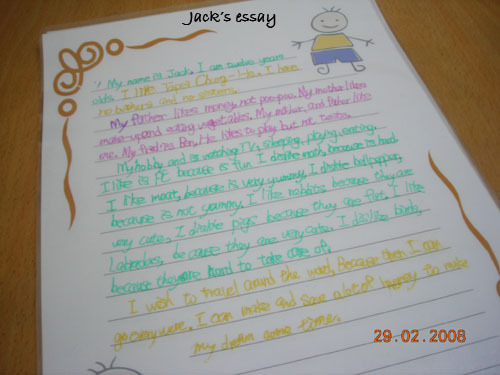 Jack's essay
My name is Jack. I am twelve years
olds. I like Taipei I have
no bothers and no sisters.
My father likes money, not My mother likes
make-up and eating vegetables. My mother, and father like
me. My is Ben. He likes to play but not tests.
My hobby and is watching TV, sleeping, playing, eating.
I like is PE because is fun. I dislike math, because is hard.
I like meat, because is very yummy, I dislike bellpapper,
because is not yummy. I like rabbits because they are
very cute. I dislike pigs because they are fat. I like
Labradors, be cause they are very cute. I dislike birds,
because they are hard to take care of.
I wish to travel around the because then I can
go everywere. I can make and save a lot of to make
my dream come time.
29.02.2008